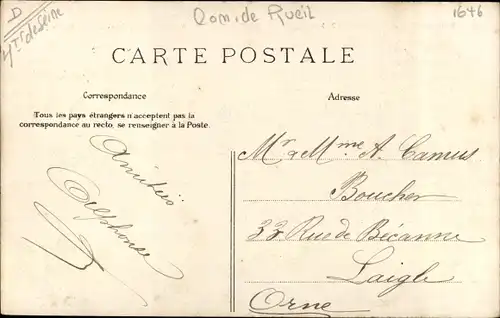 D
Hts de Seine
Com. de Rueil
1646
CARTE POSTALE
Correspondance
Adresse
Tous les pays étrangers n'acceptent pas la
correspondance au recto, se renseigner à la Poste.
Amitiés
Alphonse
Mr & Mme A. Camus
Boucher
33 Rue de Bécanne
Laigle
Orne